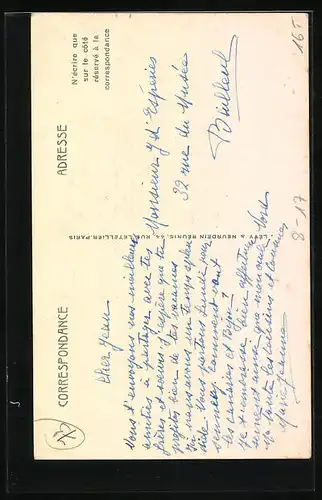 CORRESPONDANCE
Cher Jean
Nous t'envoyons nos meilleures
amitiés à partager avec tes
frères et sœurs j'espère que tu
profites bien de tes vacances
Ici nous avons un temps splen
dide. Nous partons Lundi pour
comment sont
les cousines et
Je t'embrasse bien affectueu
sement ainsi que mon oncle
ma tante les cousins et cousines
Marie Jeanne
LEVY & NEURDEIN RÉUNIS, 44, RUE LETELLIER, PARIS
ADRESSE
N'écrire que
sur le côté
réservé à la
correspondance
Monsieur J d'Espesies
32 rue du Musée
Bailleul
16 T
8-17